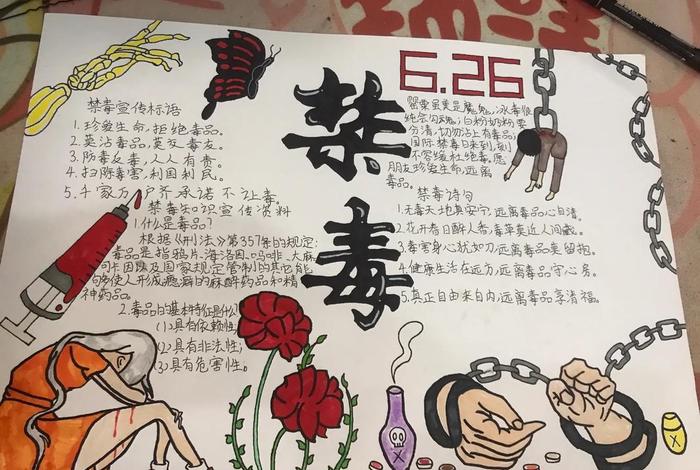 6.26
禁
毒
禁毒宣传标语
1.珍爱生命,拒绝毒品。
2.莫沾毒品,莫交毒友。
3.防毒反毒,人人有责。
4.扫除毒害,利国利民。
5.千家万户齐承诺 不让毒。
禁毒知识宣传资料
1.什么是毒品?
根据《刑法》第357年的规定:
毒品是指鸦片.海洛因.吗啡.大麻
可卡因以及国家规定管制的其它能
够使人形成瘾癖的麻醉药品和精
神药品。
2.毒品的基本特征是什么
(1)具有依赖性;
(2)具有非法性;
(3)具有危害性。
罂粟虽美是魔鬼,冰毒很
纯会勾魂;白粉奶粉要
分清,切勿沾上有毒品;
国际禁毒日来到,刻
不容缓杜绝毒。愿
朋友珍爱生命,远离
毒品。
禁毒诗句
1.无毒天地真安宁,远离毒品心自清。
2.花开春日醉人香,毒草莫近人间藏。
3.毒害身心犹如刀,远离毒品莫留抱。
4.健康生活在远方,远离毒品守心房。
5.真正自由来自内,远离毒品享清福。